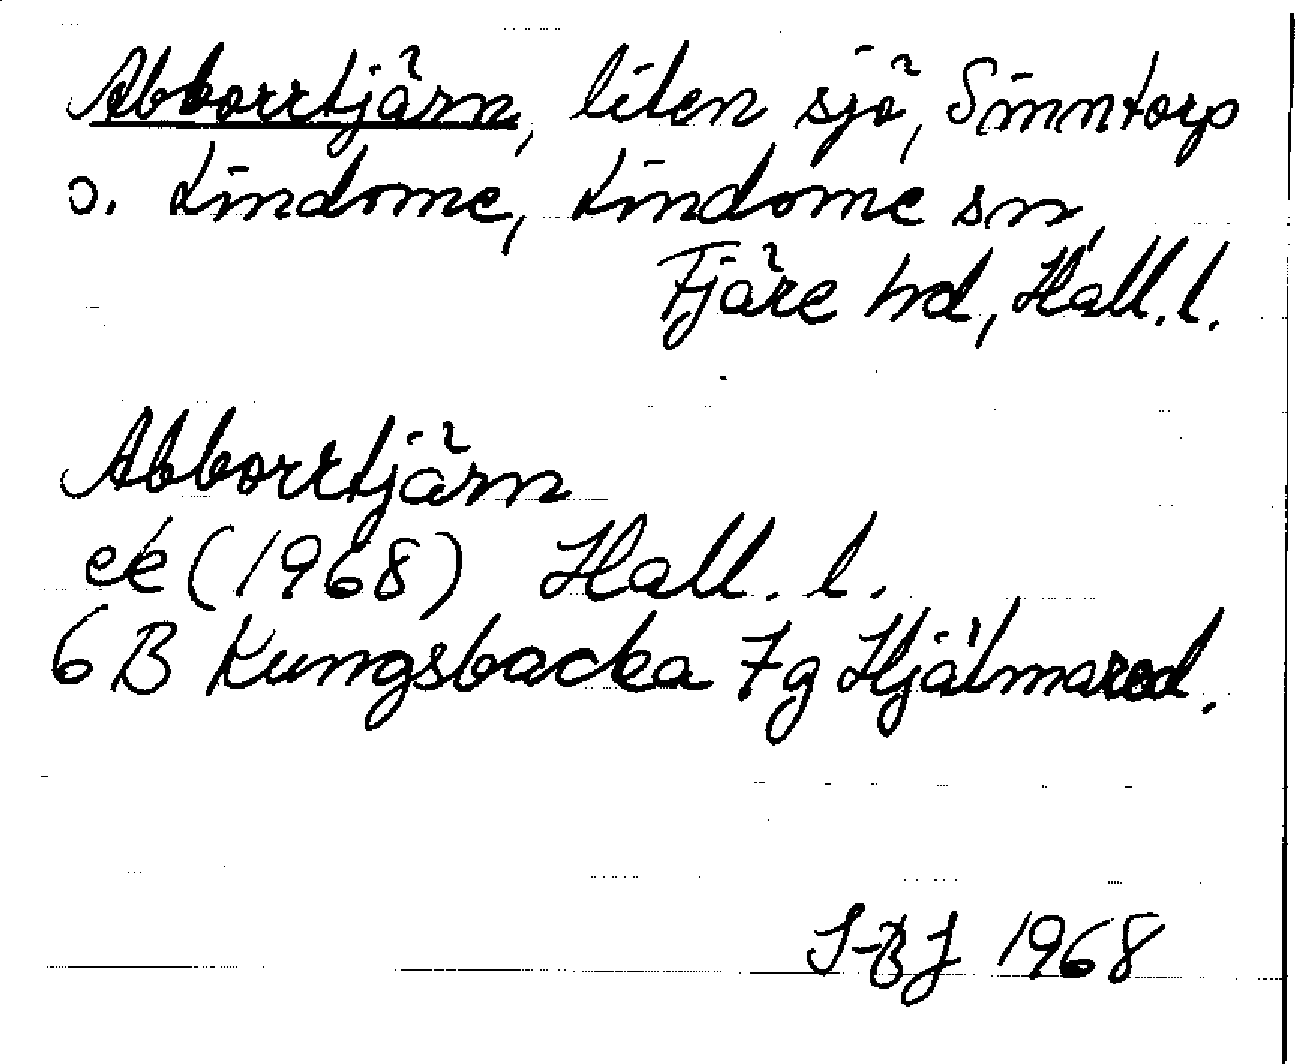 Abborrtjärn, liten sjö, Sinntorp
o. Lindome, Lindome sn,
Fjäre hd, Hall. l.
Abborrtjärn
ek (1968) Hall. l.
6 B Kungsbacka 7 g Hjälmared.
1968